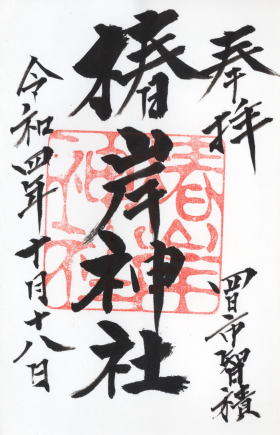 奉拝
四日市智積
椿岸神社
令和四年十月十八日